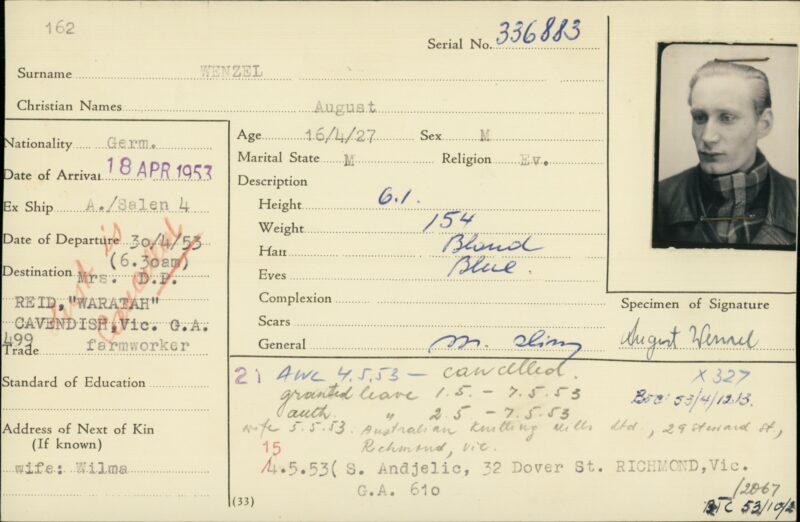 162
Serial No. 336883
Surname WENZEL
Christian Names August
Nationality Germ.
Date of Arrival 18 APR 1953
Ex Ship A./Salen 4
Date of Departure 30/4/53
(6.30am)
Destination Mrs. D.P.
REID, "WARATAH"
CAVENDISH, Vic. G.A.
499
Trade farmworker
Standard of Education
Address of Next of Kin
(If known)
wife: Wilma
Age 16/4/27 Sex M
Marital State M Religion Ev.
Description
Height 6.1.
Weight 154
Hair Blond
Eyes Blue.
Complexion
Scars
General m. slim
Specimen of Signature
August Wenzel
21 AWL 4.5.53 — cancelled.
granted leave 1.5. - 7.5.53
auth. " 2.5 - 7.5.53
wife 5.5.53. Australian Knitting Mills Ltd., 29 Steward St,
Richmond, Vic.
15
4.5.53( S. Andjelic, 32 Dover St. RICHMOND, Vic.
G.A. 610
X 327
BTC 53/4/12.13.
/2067
BTC 53/10/2
(33)